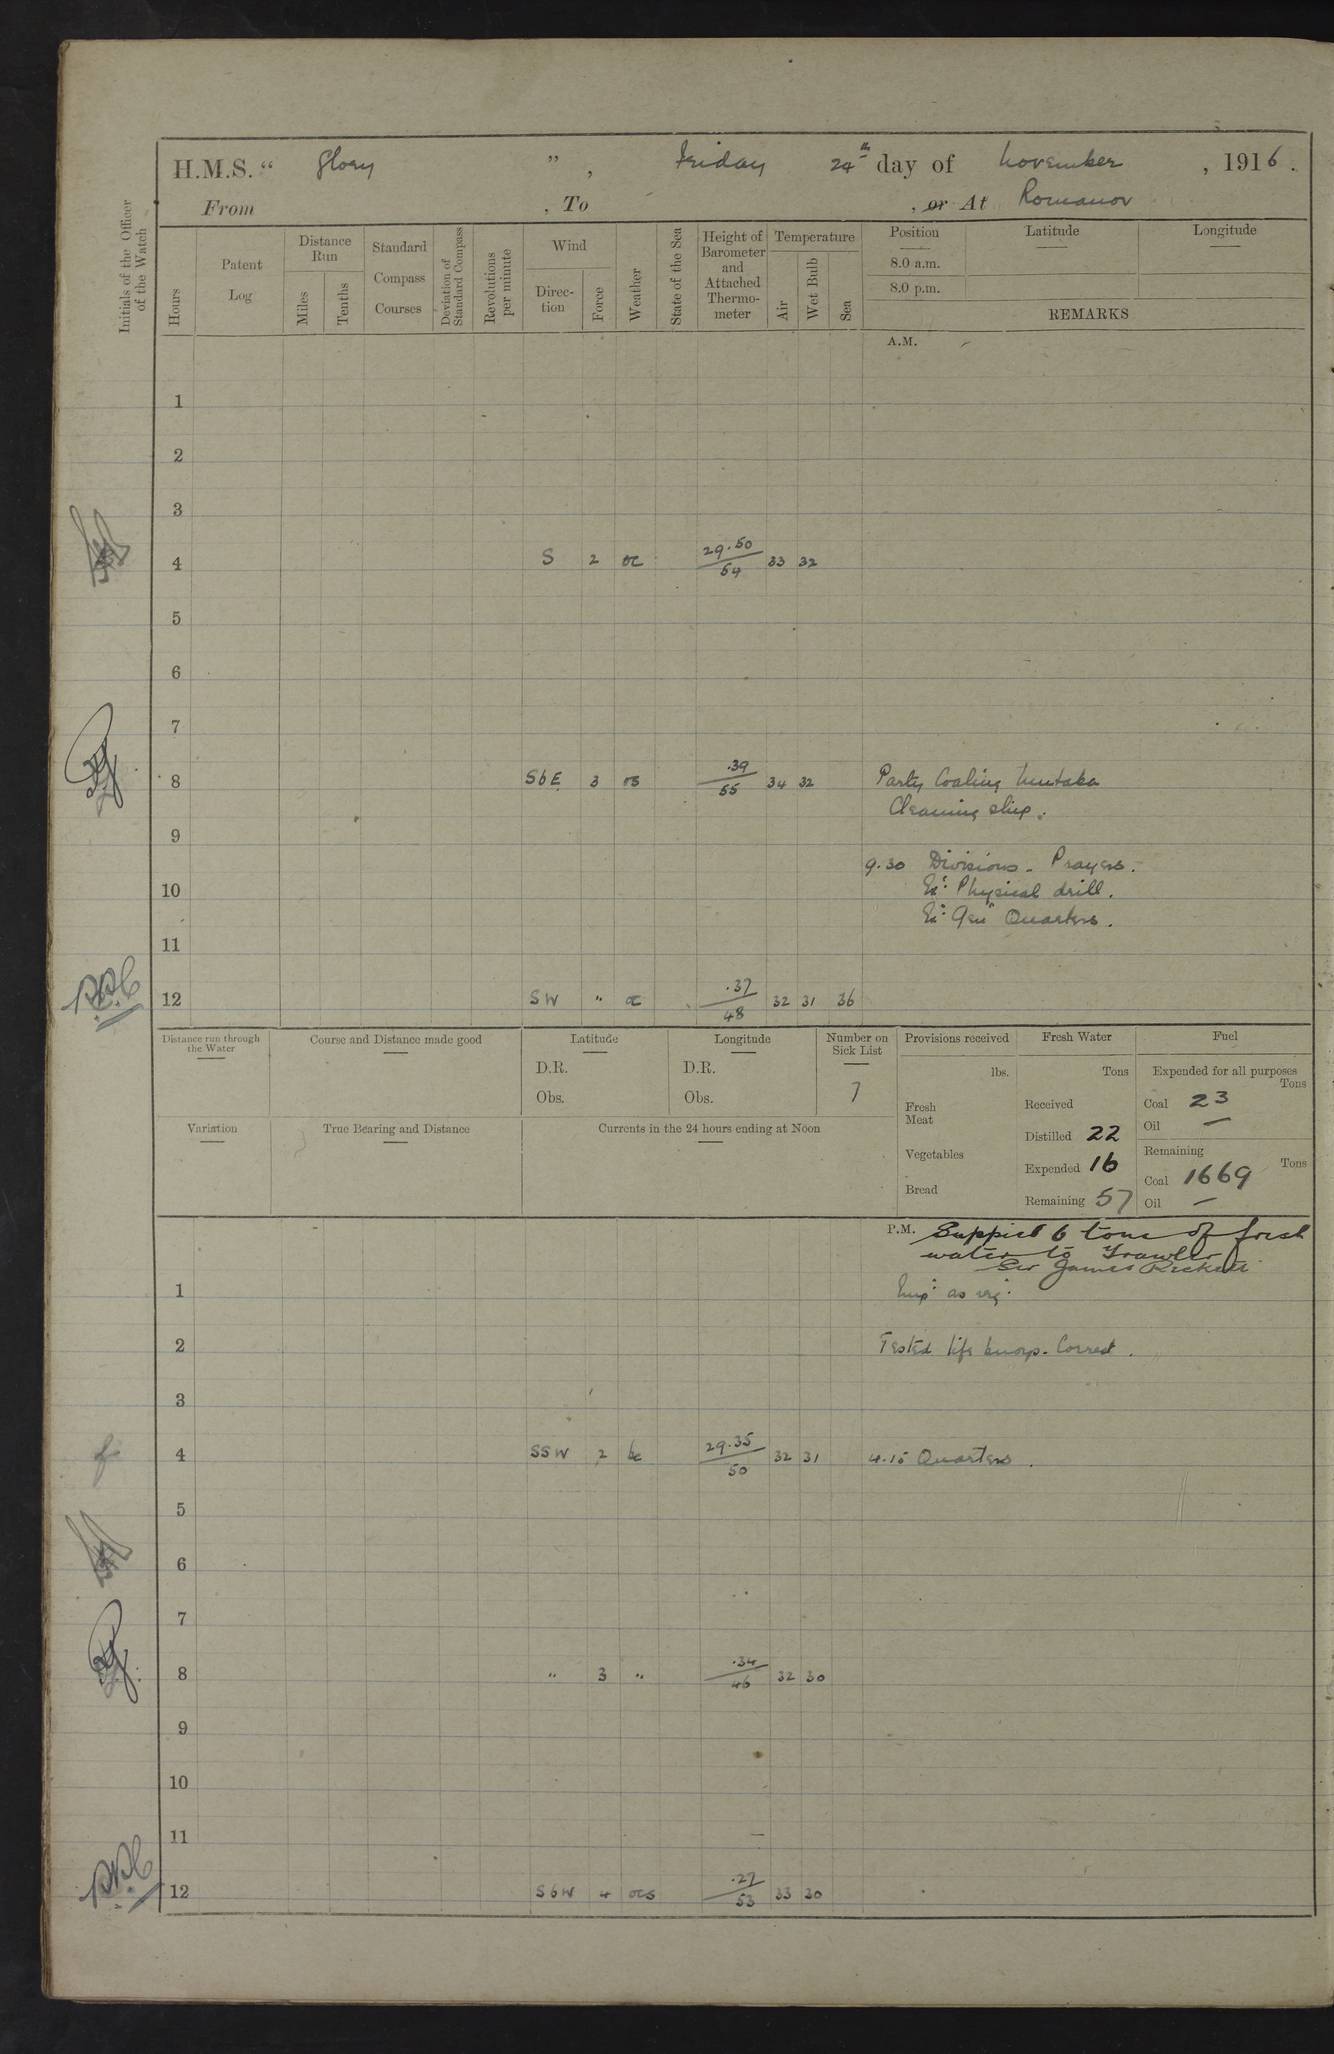 H.M.S. “ Glory ”, Friday 24th day of November, 1916.
From , To , or At Romanov
Initials of the Officer of the Watch
Hours
Patent Log
Distance Run
Miles
Tenths
Standard Compass Courses
Deviation of Standard Compass
Revolutions per minute
Wind
Direc-tion
Force
Weather
State of the Sea
Height of Barometer and Attached Thermo-meter
Temperature
Air
Wet Bulb
Sea
Position Latitude Longitude
8.0 a.m.
8.0 p.m.
REMARKS
A.M.
1
2
3
4 S 2 oc 29.50/54 33 32
5
6
7
8 SbE 3 os .39/55 34 32 Party Coaling
Cleaning ship.
9
9.30 Divisions - Prayers.
10 Ex: Physical drill.
Ex: Gen Quarters.
11
12 SW " oc .37/48 32 31 36
Distance run through the Water
Course and Distance made good
Latitude
D.R.
Obs.
Longitude
D.R.
Obs.
Number on Sick List
7
Provisions received
lbs.
Fresh Meat
Vegetables
Bread
Fresh Water
Tons
Received
Distilled 22
Expended 16
Remaining 57
Fuel
Expended for all purposes
Tons
Coal 23
Oil —
Remaining
Tons
Coal 1669
Oil —
Variation
True Bearing and Distance
Currents in the 24 hours ending at Noon
P.M. Suppied 6 tons of fresh
water to Trawler
Sir James Reckitt
1 Emp: as req:
2 Tested life buoys. Correct.
3
4 SSW 2 bc 29.35/50 32 31 4.15 Quarters.
5
6
7
8 " 3 " .34/46 32 30
9
10
11
12 SbW 4 ocs .27/53 33 30